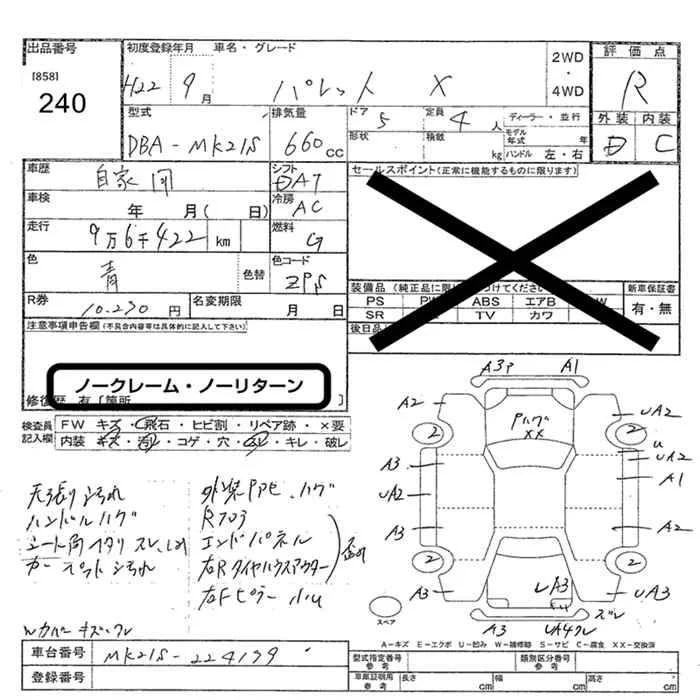 出品番号 初度登録年月 車名・グレード 2WD・4WD 評価点
[858]
240
H22 9月 パレット X R
型式 排気量 ドア 5 定員 4人 ディーラー・並行 外装 内装
DBA-MK21S 660cc 形状 積載 kg モデル年式 年 ハンドル 左・右 D C
車歴 自家用 シフト DAT セールスポイント(正常に機能するものに限ります)
車検 年 月( 日) 冷房 AC
走行 9万6千422 km 燃料 G
色 青 色替 色コード ZPS 装備品 (純正品に限 つけてください 新車保証書
R券 10.230円 名変期限 月 日 PS PW ABS エアB W 有・無
SR TV カワ
注意事項申告欄(不具合内容等は具体的に記入して下さい) 後日品
ノークレーム・ノーリターン
修復歴 有 [箇所 ]
検査員記入欄 FW キズ・飛石・ヒビ割・リペア跡・×要
内装 キズ・汚れ・コゲ・穴・スレ・キレ・破レ
A3P A1
A2 Pハゲ XX UA2
2 2
U
A3 UA2
UA2 A1
A3 A2
2 2
A3 UA3 UA3
ズレ
スペア A3 UA4クレ
天張り汚れ 外装P艶、ハゲ
ハンドルハゲ R703
シート角ヘタリ スレ エンドパネル
カーペット汚れ 右Rタイヤハウスアウター 歪み
右Fピラー 小U
Wカバー キズ・クレ
A-キズ E-エクボ U-凹み W-補修跡 S-サビ C-腐食 XX-交換済
車台番号 MK21S-224139 型式指定番号 参考 類別区分番号 参考
登録番号 車庫証明用 参考 長さ cm 幅 cm 高さ cm